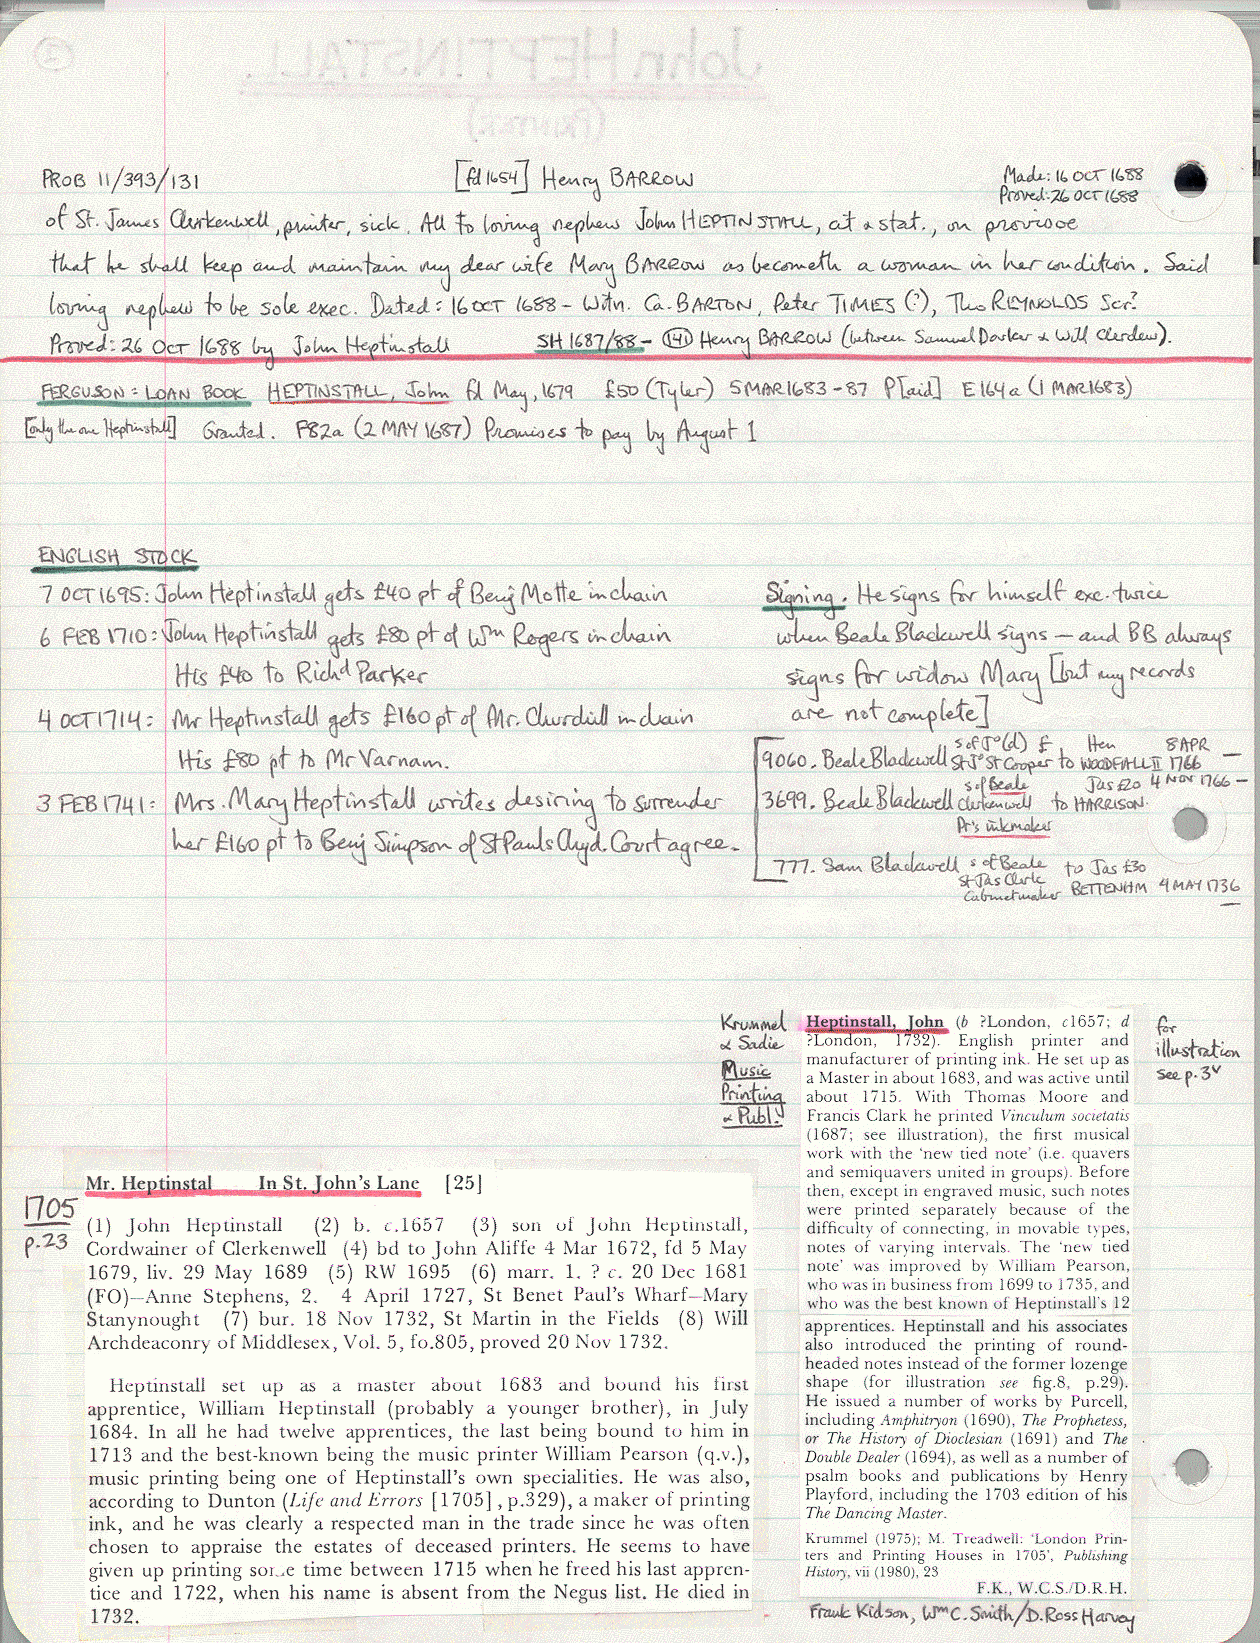 PROB 11/393/131 [fd 1654] Henry BARROW Made: 16 OCT 1688
Proved: 26 OCT 1688
of St. James Clerkenwell, printer, sick. All to loving nephew John HEPTINSTALL, at a stat., on provisoe
that he shall keep and maintain my dear wife Mary BARROW as becometh a woman in her condition. Said
loving nephew to be sole exec. Dated: 16 OCT 1688 - Witn. Ca. BARTON, Peter TIMES (?), Tho REYNOLDS Scr?
Proved: 26 OCT 1688 by John Heptinstall SH 1687/88 - (141) Henry BARROW (between Samuel Darker & Will Clerdew).
FERGUSON = LOAN BOOK HEPTINSTALL, John fd May, 1679 £50 (Tyler) 5 MAR 1683-87 P[aid] E164a (1 MAR 1683)
[only the one Heptinstall] Granted. F82a (2 MAY 1687) Promises to pay by August 1
ENGLISH STOCK
7 OCT 1695: John Heptinstall gets £40 pt of Benj Motte in chain
6 FEB 1710: John Heptinstall gets £80 pt of Wm Rogers in chain
His £40 to Richd Parker
4 OCT 1714: Mr Heptinstall gets £160 pt of Mr. Churchill in chain
His £80 pt to Mr Varnam.
3 FEB 1741: Mrs. Mary Heptinstall writes desiring to surrender
her £160 pt to Benj Simpson of St Pauls Chyd. Court agree.
Signing. He signs for himself exc. twice
when Beale Blackwell signs — and BB always
signs for widow Mary [but my records
are not complete]
s of Jo (d) £ Hen 8 APR
9060. Beale Blackwell St Jo St Cooper to WOODFALL II 1766 —
s of Beale Jas £20 4 NOV 1766 —
3699. Beale Blackwell Clerkenwell to HARRISON.
Pr's inkmaker
777. Sam Blackwell s of Beale to Jas £30
St Jas Clerk BETTENHM 4 MAY 1736
Cabinetmaker
Krummel
& Sadie
Music
Printing
& Publ.
Heptinstall, John (b ?London, c1657; d
?London, 1732). English printer and
manufacturer of printing ink. He set up as
a Master in about 1683, and was active until
about 1715. With Thomas Moore and
Francis Clark he printed Vinculum societatis
(1687; see illustration), the first musical
work with the 'new tied note' (i.e. quavers
and semiquavers united in groups). Before
then, except in engraved music, such notes
were printed separately because of the
difficulty of connecting, in movable types,
notes of varying intervals. The 'new tied
note' was improved by William Pearson,
who was in business from 1699 to 1735, and
who was the best known of Heptinstall's 12
apprentices. Heptinstall and his associates
also introduced the printing of round-
headed notes instead of the former lozenge
shape (for illustration see fig.8, p.29).
He issued a number of works by Purcell,
including Amphitryon (1690), The Prophetess,
or The History of Dioclesian (1691) and The
Double Dealer (1694), as well as a number of
psalm books and publications by Henry
Playford, including the 1703 edition of his
The Dancing Master.
Krummel (1975); M. Treadwell: 'London Prin-
ters and Printing Houses in 1705', Publishing
History, vii (1980), 23
F.K., W.C.S./D.R.H.
Frank Kidson, Wm C. Smith/D. Ross Harvey
for
illustration
see p. 3v
1705
p. 23
Mr. Heptinstal In St. John's Lane [25]
(1) John Heptinstall (2) b. c.1657 (3) son of John Heptinstall,
Cordwainer of Clerkenwell (4) bd to John Aliffe 4 Mar 1672, fd 5 May
1679, liv. 29 May 1689 (5) RW 1695 (6) marr. 1. ? c. 20 Dec 1681
(FO)—Anne Stephens, 2. 4 April 1727, St Benet Paul's Wharf—Mary
Stanynought (7) bur. 18 Nov 1732, St Martin in the Fields (8) Will
Archdeaconry of Middlesex, Vol. 5, fo.805, proved 20 Nov 1732.
Heptinstall set up as a master about 1683 and bound his first
apprentice, William Heptinstall (probably a younger brother), in July
1684. In all he had twelve apprentices, the last being bound to him in
1713 and the best-known being the music printer William Pearson (q.v.),
music printing being one of Heptinstall's own specialities. He was also,
according to Dunton (Life and Errors [1705], p.329), a maker of printing
ink, and he was clearly a respected man in the trade since he was often
chosen to appraise the estates of deceased printers. He seems to have
given up printing some time between 1715 when he freed his last appren-
tice and 1722, when his name is absent from the Negus list. He died in
1732.